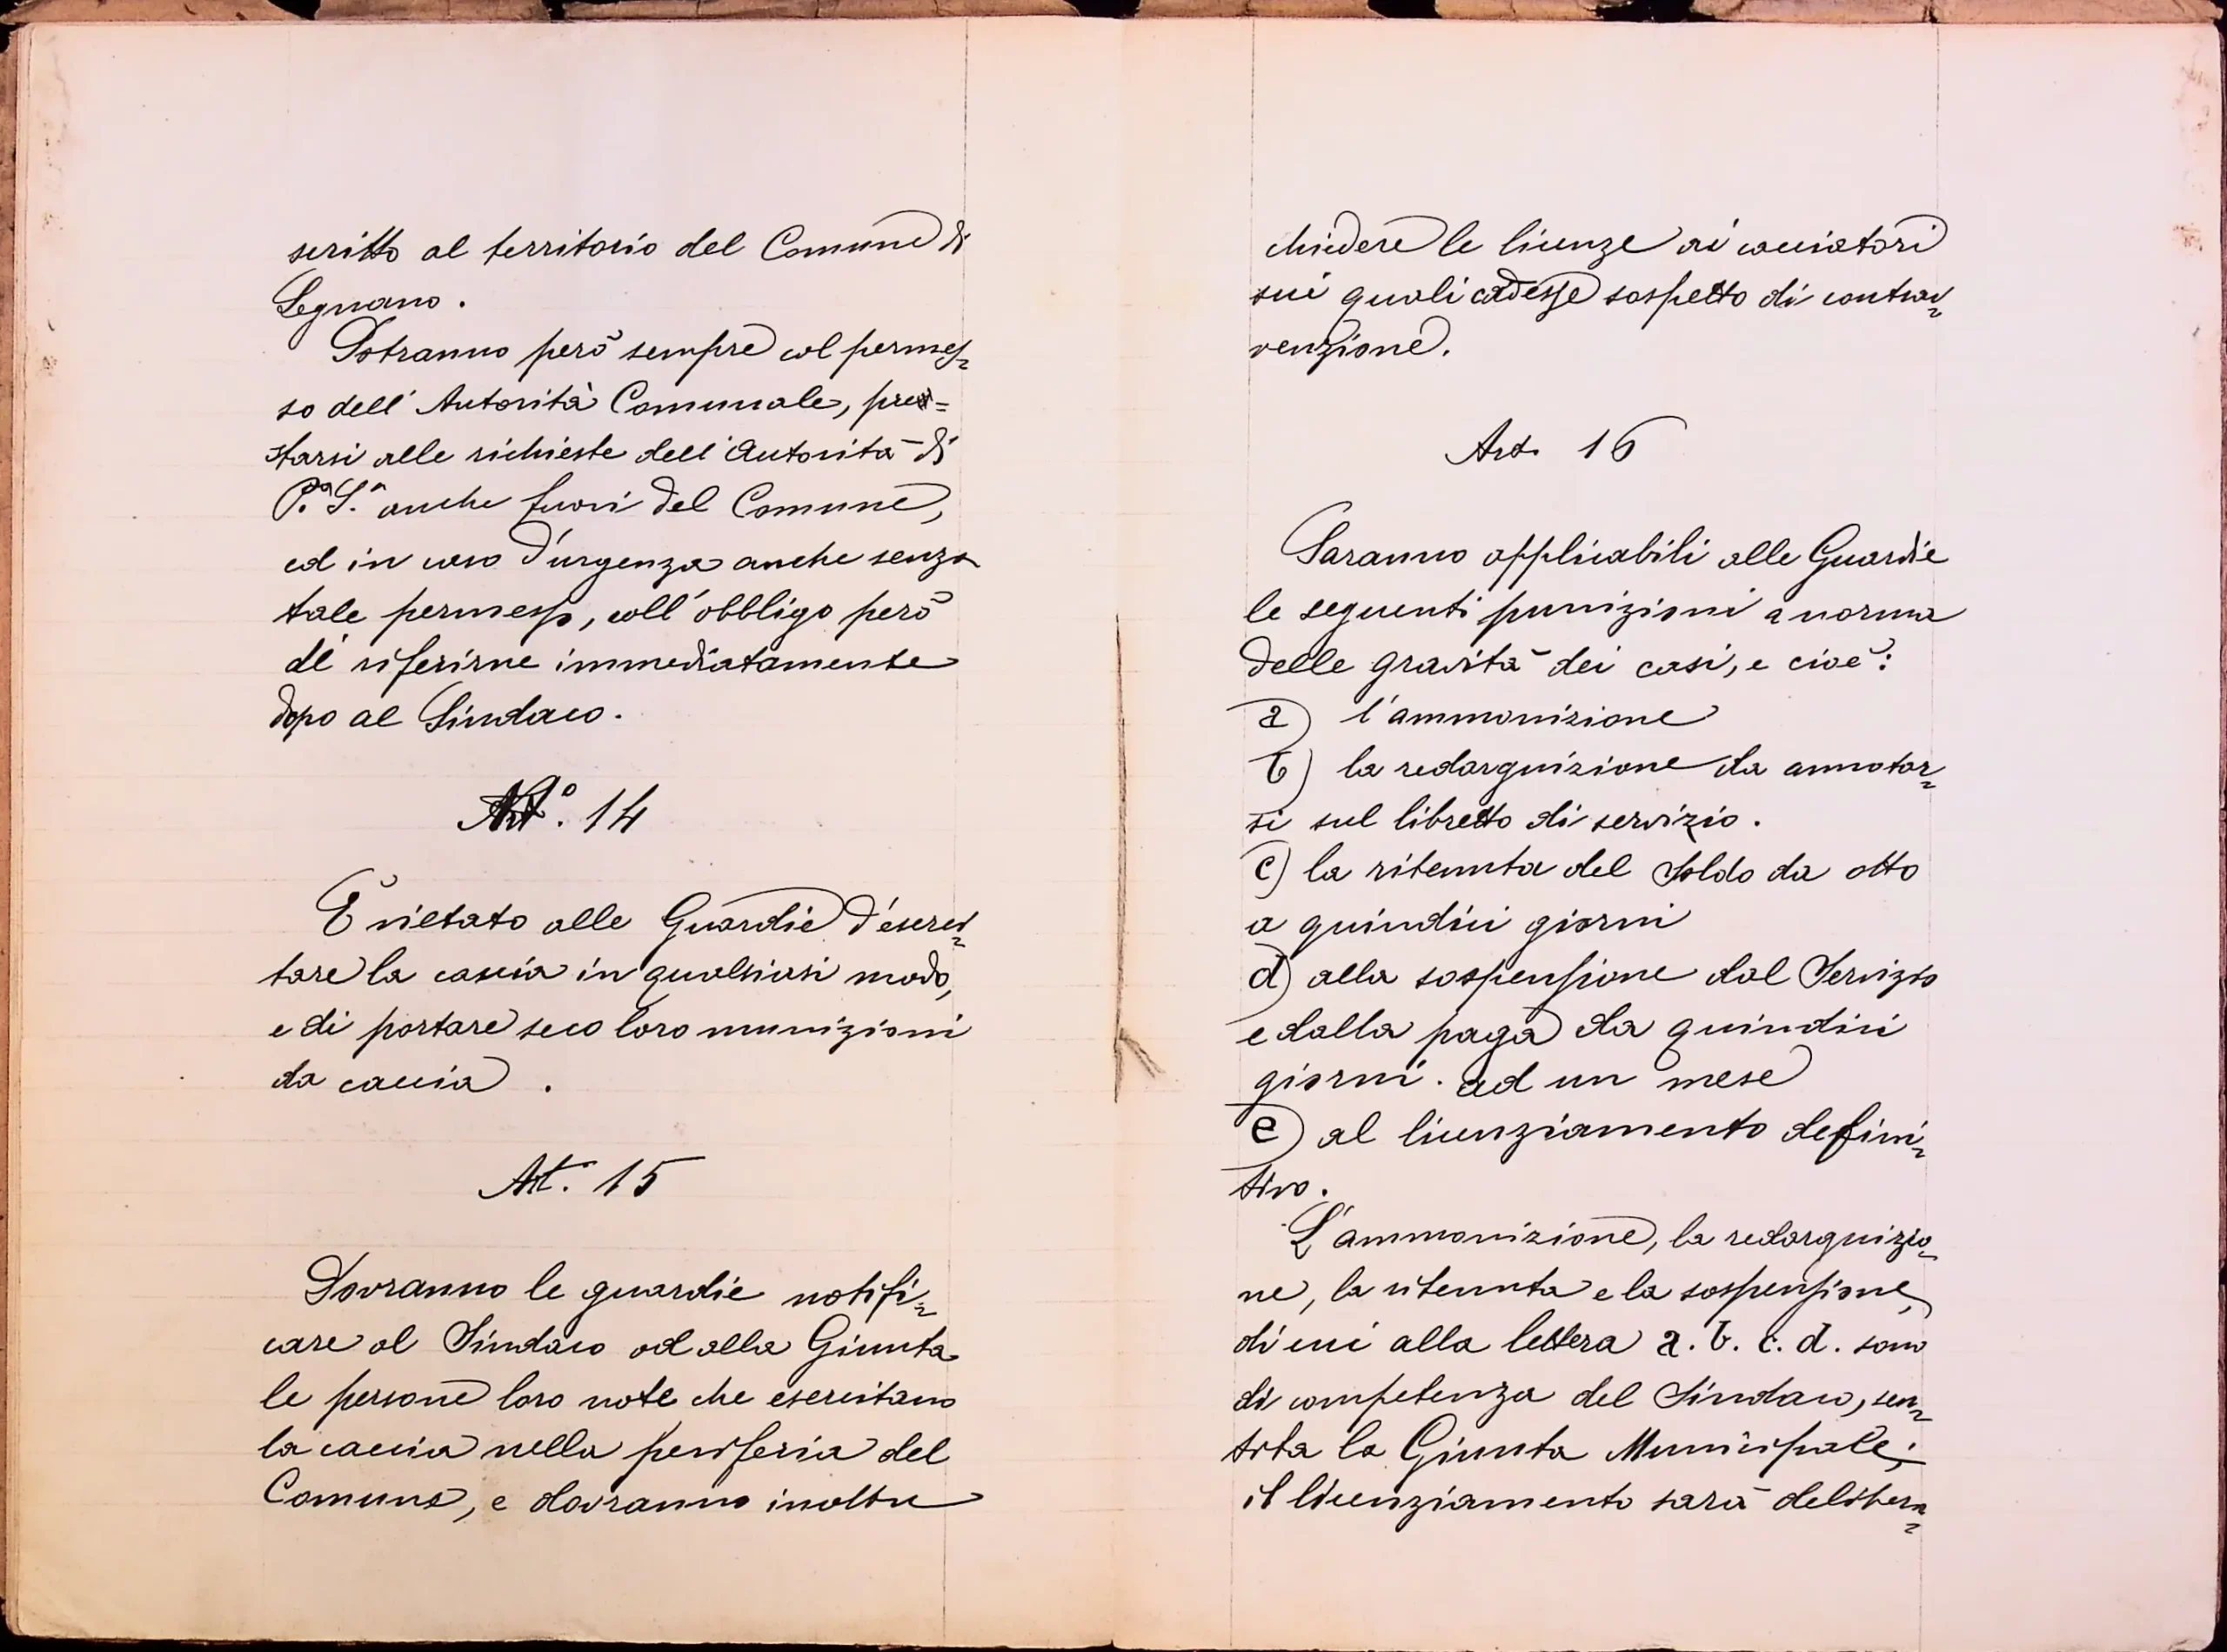 scritto al territorio del Comune di
Legnano.
Potranno però sempre col permes=
so dell'Autorità Comunale, pres=
tarsi alle richieste dell'Autorità di
P.a S.a anche fuori del Comune,
ed in caso d'urgenza anche senza
tale permesso, coll'obbligo però
di riferirne immediatamente
dopo al Sindaco.
Art.° 14
È vietato alle Guardie d'eserci=
tare la caccia in qualsiasi modo,
e di portare seco loro munizioni
da caccia.
Art. 15
Dovranno le guardie notifi=
care al Sindaco od alla Giunta
le persone loro note che esercitano
la caccia nella periferia del
Comune, e dovranno inoltre
chiedere le licenze ai cacciatori
sui quali cadesse sospetto di contrav=
venzione.
Art. 16
Saranno applicabili alle Guardie
le seguenti punizioni a norma
delle gravità dei casi, e cioè:
a) l'ammonizione
b) la redarguizione da annotar=
si sul libretto di servizio.
c) la ritenuta del Soldo da otto
a quindici giorni
d) alla sospensione dal Servizio
e dalla paga da quindici
giorni. ad un mese
e) al licenziamento defini=
tivo.
L'ammonizione, la redarguizio=
ne, la ritenuta e la sospensione,
di cui alla lettera a. b. c. d. sono
di competenza del Sindaco, sen=
tita la Giunta Municipale;
il licenziamento sarà delibera=